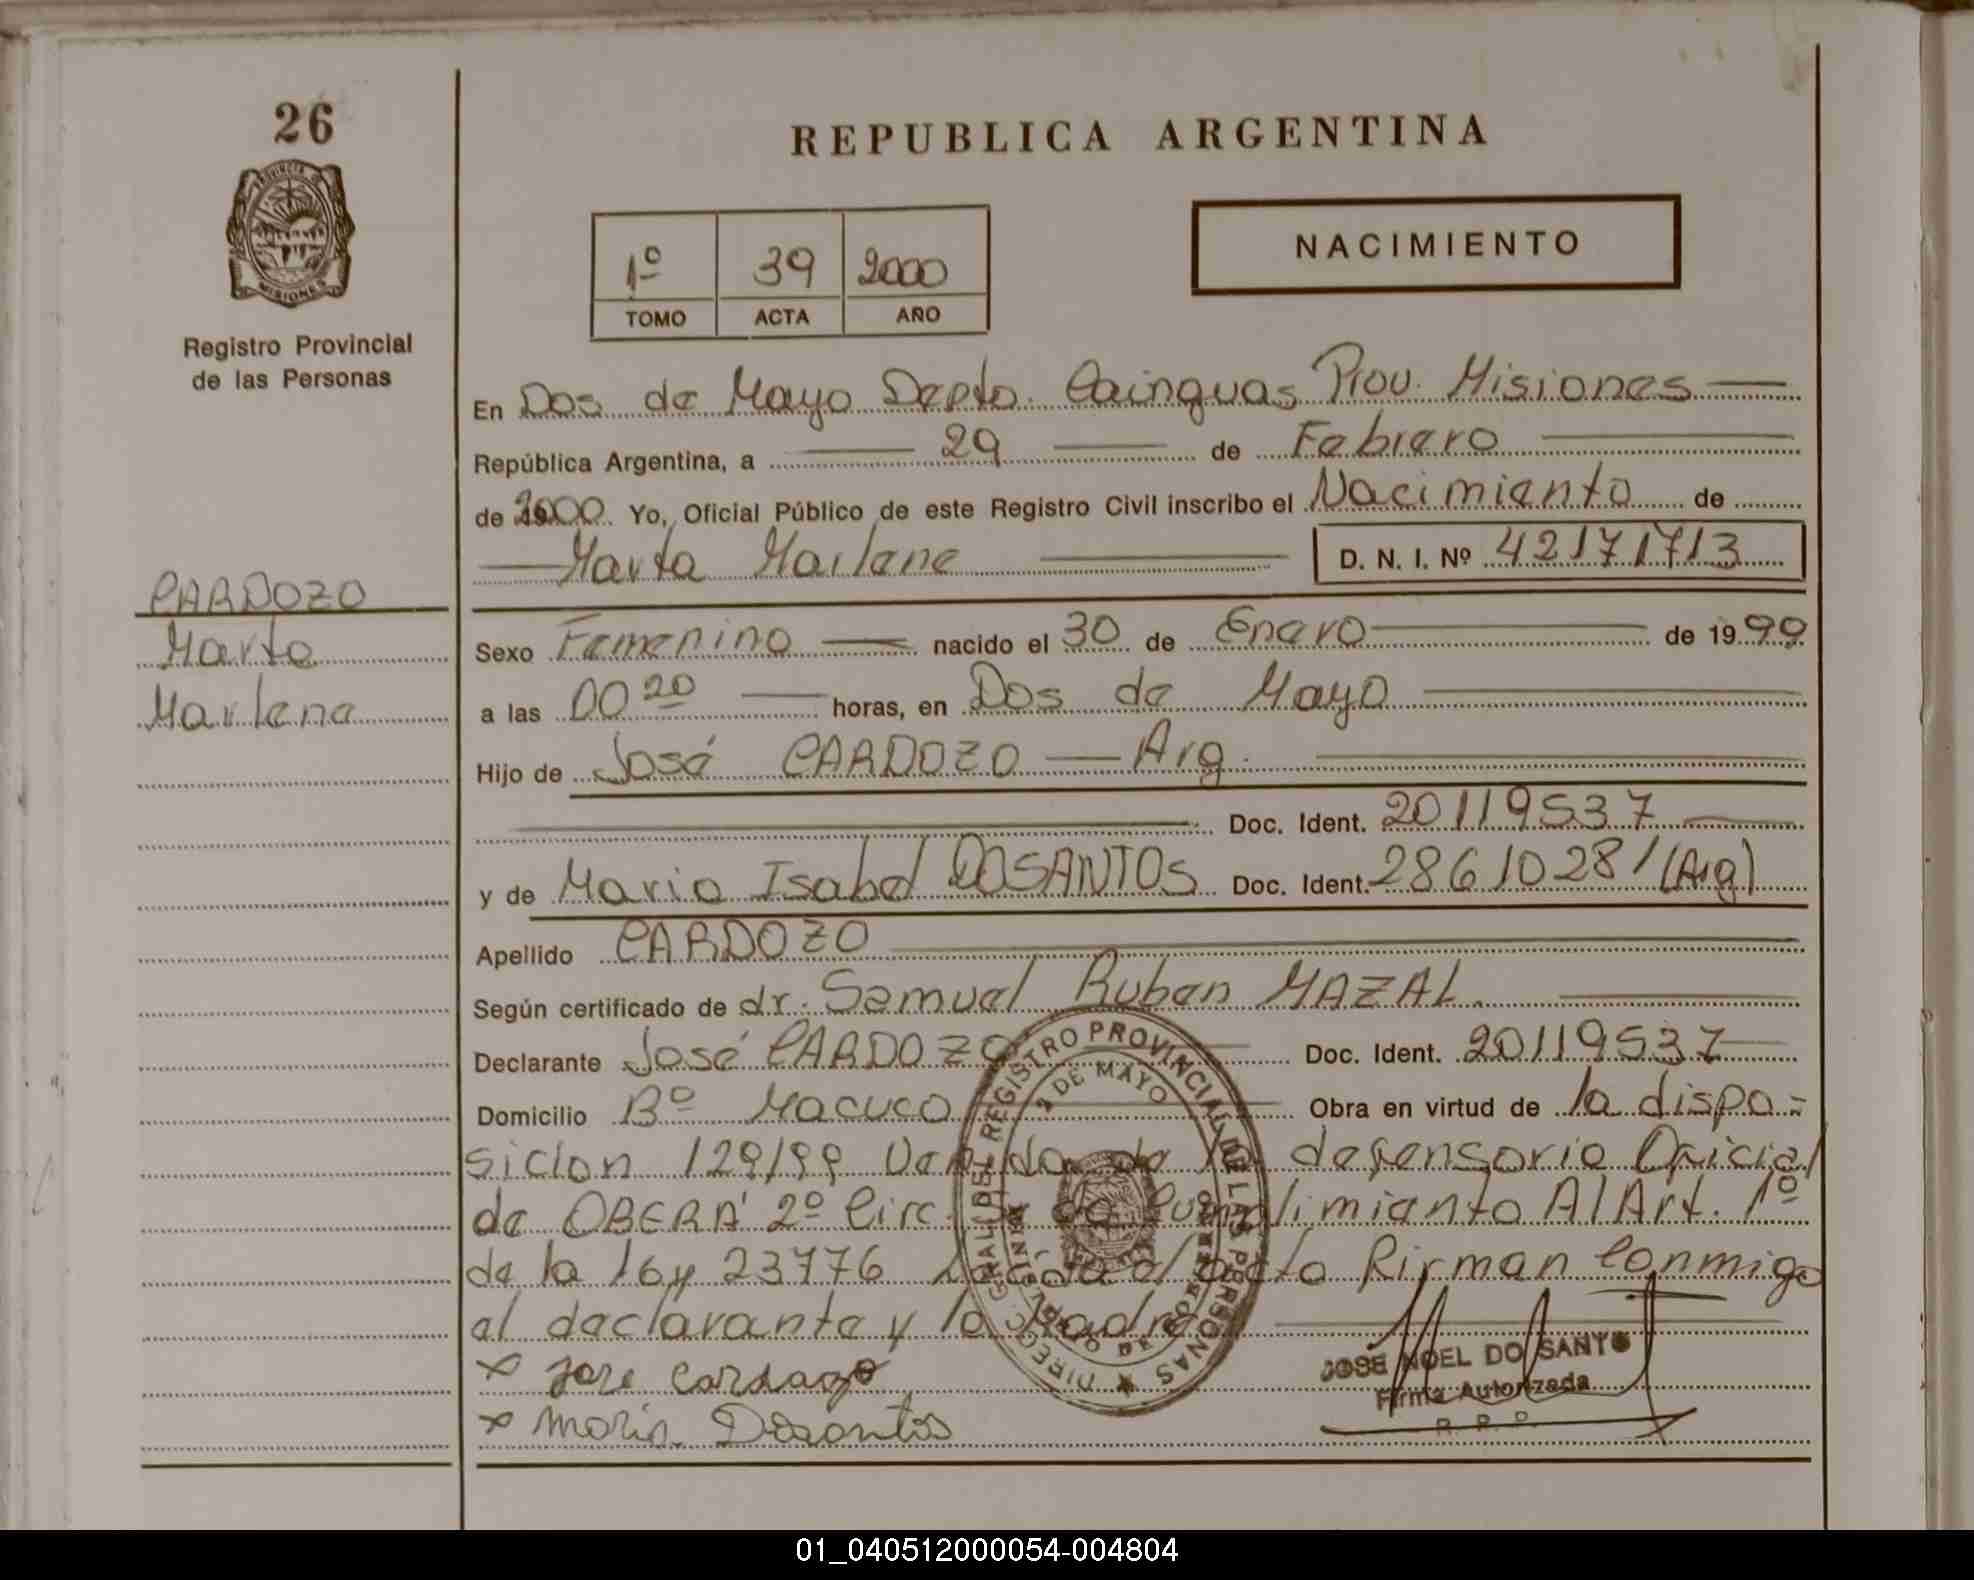 26
REPUBLICA ARGENTINA
PROVINCIA DE
MISIONES
Registro Provincial
de las Personas
NACIMIENTO
1º 39 2000
TOMO ACTA AÑO
En Dos de Mayo Depto. Cainguas Prov. Misiones
República Argentina, a 29 de Febrero
de 2000 Yo, Oficial Público de este Registro Civil inscribo el Nacimiento de
Marta Marlene D. N. I. Nº 42171713
CARDOZO
Marta
Marlene
Sexo Femenino nacido el 30 de Enero de 1999
a las 00 20 horas, en Dos de Mayo
Hijo de José CARDOZO Arg.
Doc. Ident. 20119537
y de Maria Isabel DOSANTOS Doc. Ident. 28610281 (Arg)
Apellido CARDOZO
Según certificado de dr. Samuel Ruben MAZAL
Declarante José CARDOZO Doc. Ident. 20119537
Domicilio Bº Macuco Obra en virtud de la dispo-
sicion 129/99 de la defensoria Oficial
de OBERÁ 2º Circ. Cumplimiento Al Art. 1º
de la ley 23776 Leida el acta Firman Conmigo
el declarante y la Madre
x Jose Cardozo
x Maria Dosantos
DIREC. GRAL. DEL REGISTRO PROVINCIAL DE LAS PERSONAS
2 DE MAYO
JOSE NOEL DO SANTOS
Firma Autorizada
R. P. P.
01_040512000054-004804